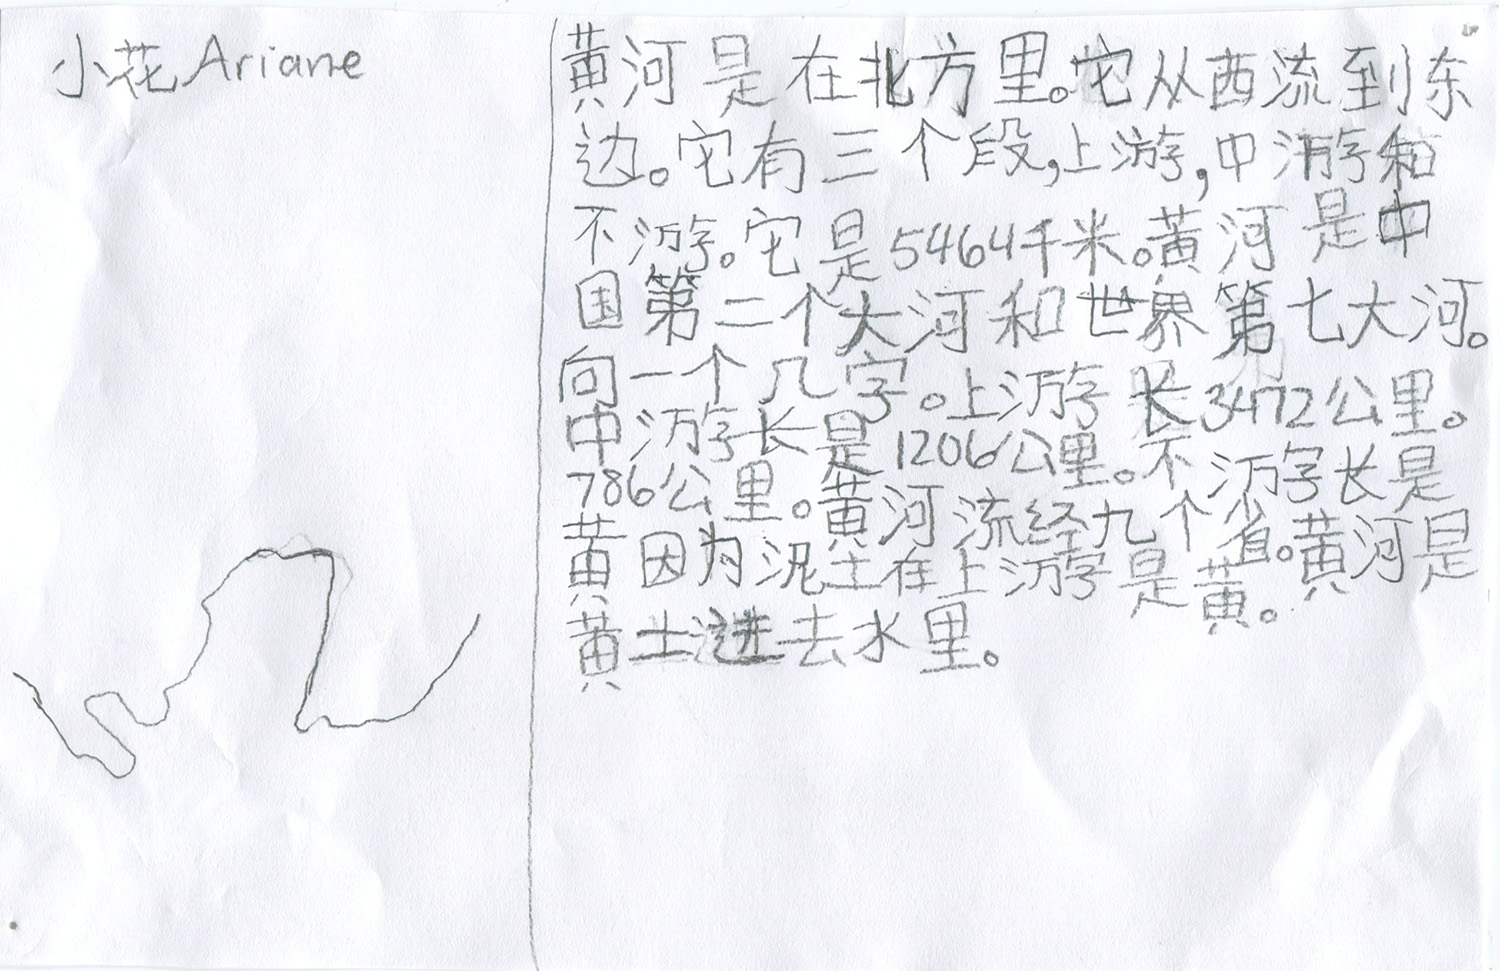 小花 Ariane
黄河是在北方里。它从西流到东
边。它有三个段,上游,中游和
不游。它是5464千米。黄河是中
国第二个大河和世界第七大河。
向一个几字。上游长3472公里。
中游长是1206公里。不游长是
786公里。黄河流经九个省。黄河是
黄因为泥土在上游是黄。
黄土进去水里。